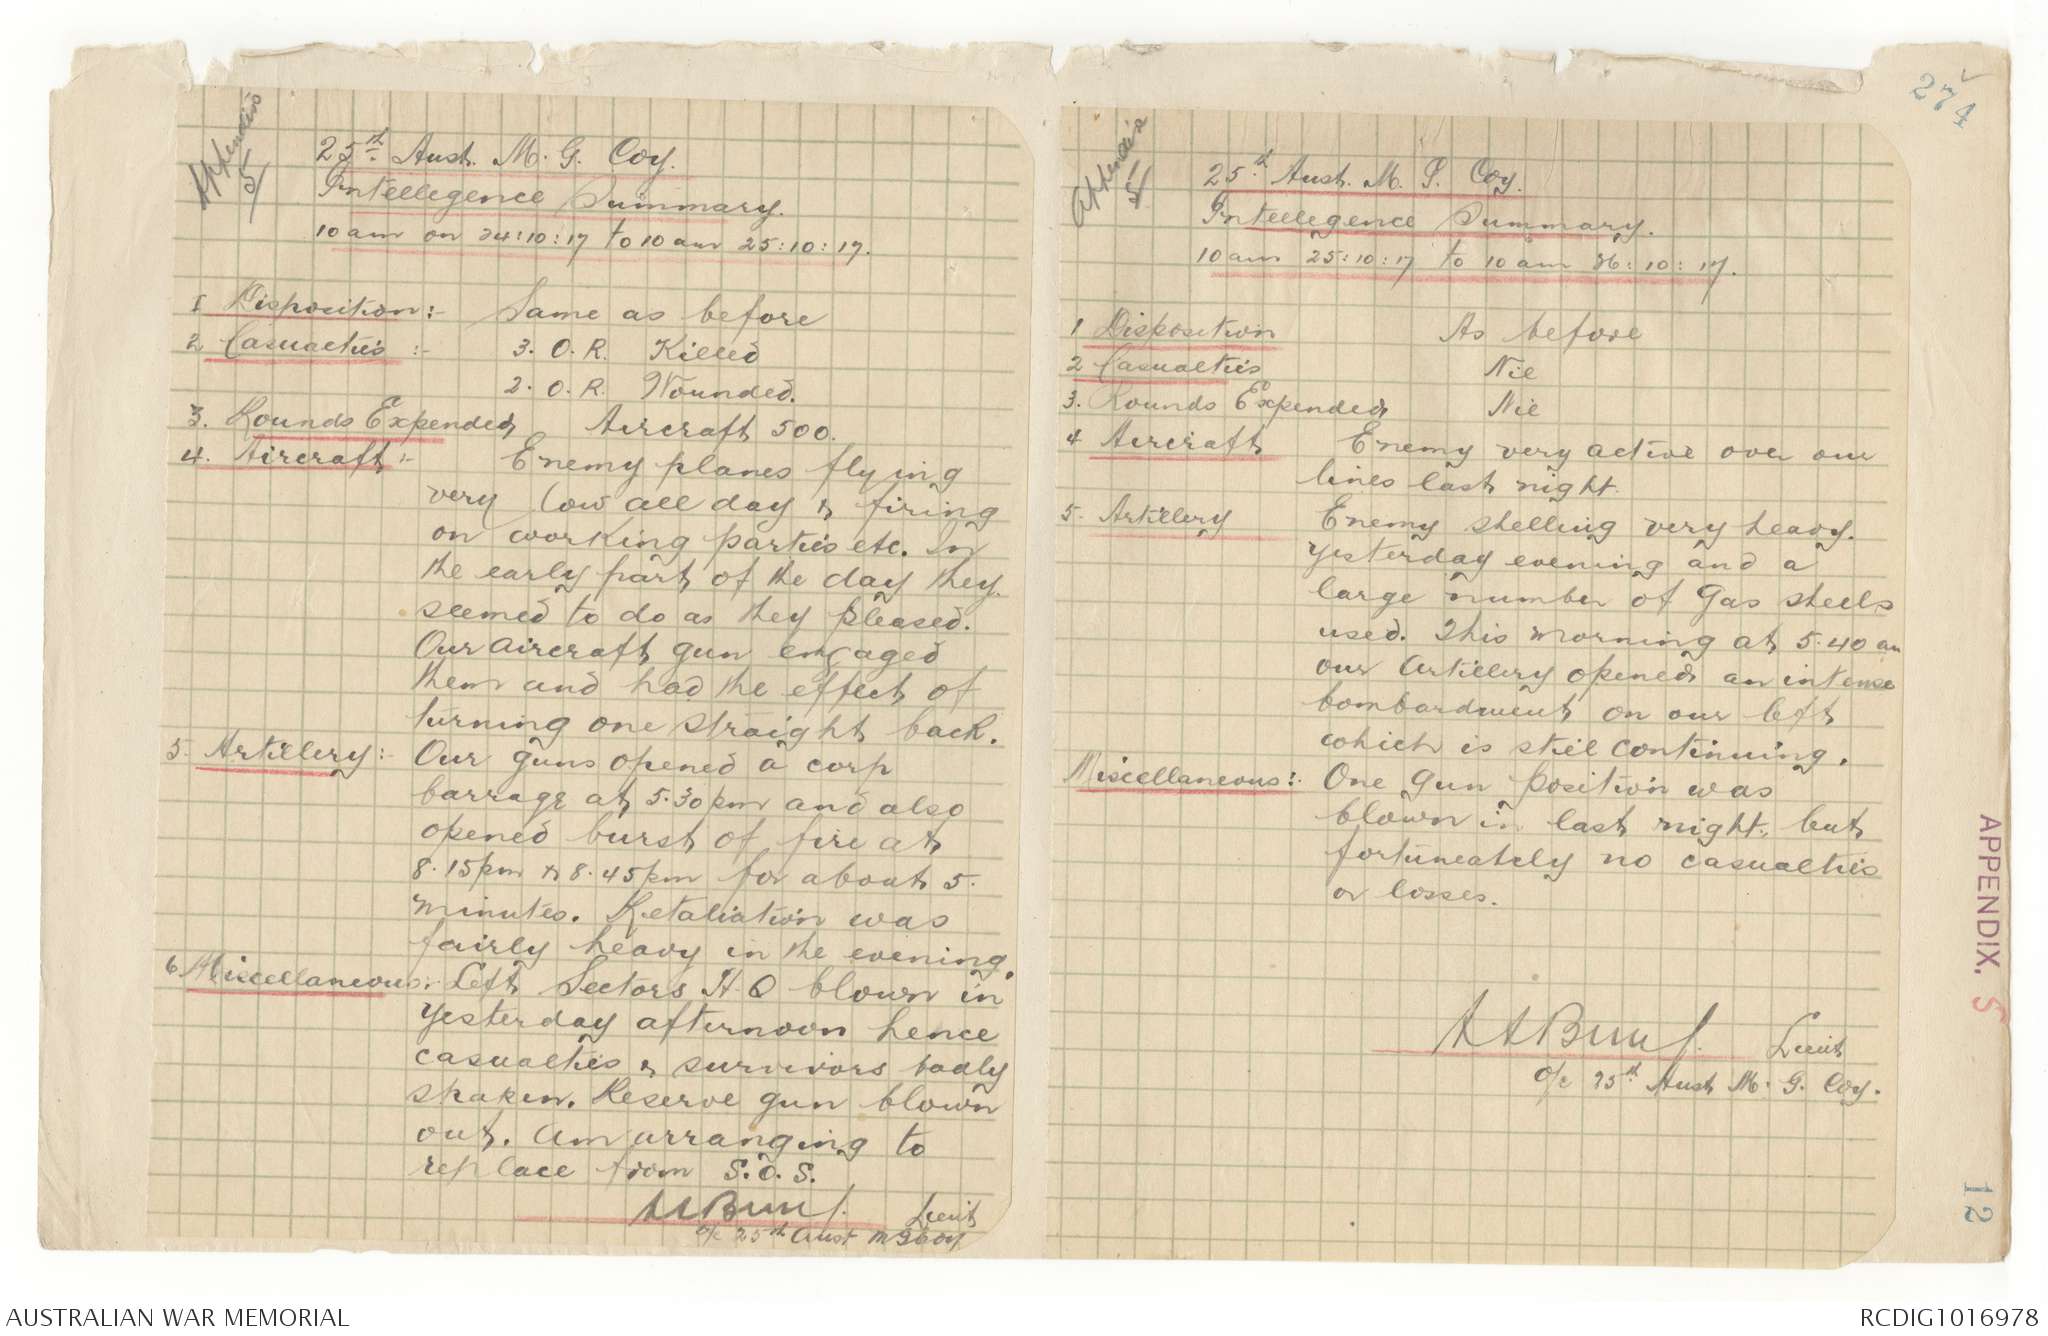 Appendix
5
25th Aust. M. G. Coy.
Intellegence Summary.
10 am on 24:10:17 to 10 am 25:10:17.
1 Disposition:- Same as before
2 Casualties :- 3. O.R. Killed
2. O.R. Wounded.
3. Rounds Expended Aircraft 500.
4. Aircraft:- Enemy planes flying
very low all day & firing
on working parties etc. In
the early part of the day they
seemed to do as they pleased.
Our aircraft gun engaged
them and had the effect of
turning one straight back.
5. Artillery:- Our guns opened a corp
barrage at 5.30pm and also
opened burst of fire at
8.15pm & 8.45pm for about 5.
minutes. Retaliation was
fairly heavy in the evening.
6 Miscellaneous:- Left Sectors H.Q blown in
yesterday afternoon hence
casualties & survivors badly
shaken. Reserve gun blown
out. Am arranging to
replace from S.O.S.
Lieut
o/c 25th Aust M G Coy
274
Appendix
5
25th Aust. M. G. Coy.
Intellegence Summary.
10 am 25:10:17 to 10 am 26:10:17.
1 Disposition As before
2 Casualties Nil
3. Rounds Expended Nil
4 Aircraft Enemy very active over our
lines last night.
5. Artillery Enemy shelling very heavy.
yesterday evening and a
large number of Gas shells
used. This morning at 5.40 am
our Artillery opened an intense
bombardment on our left
which is still continuing.
Miscellaneous:- One gun position was
blown in last night, but
fortuneately no casualties
or losses.
Lieut
o/c 25th Aust M. G. Coy.
APPENDIX. 5
12
AUSTRALIAN WAR MEMORIAL
RCDIG1016978